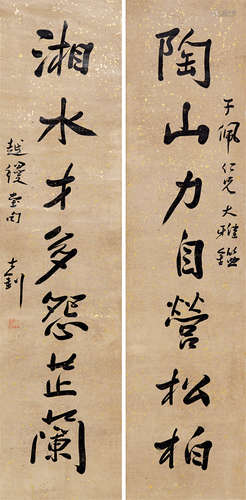 子佩仁兄大雅鑑
陶山力自營松柏
湘水才多怨芷蘭
越縵堂句
士釗